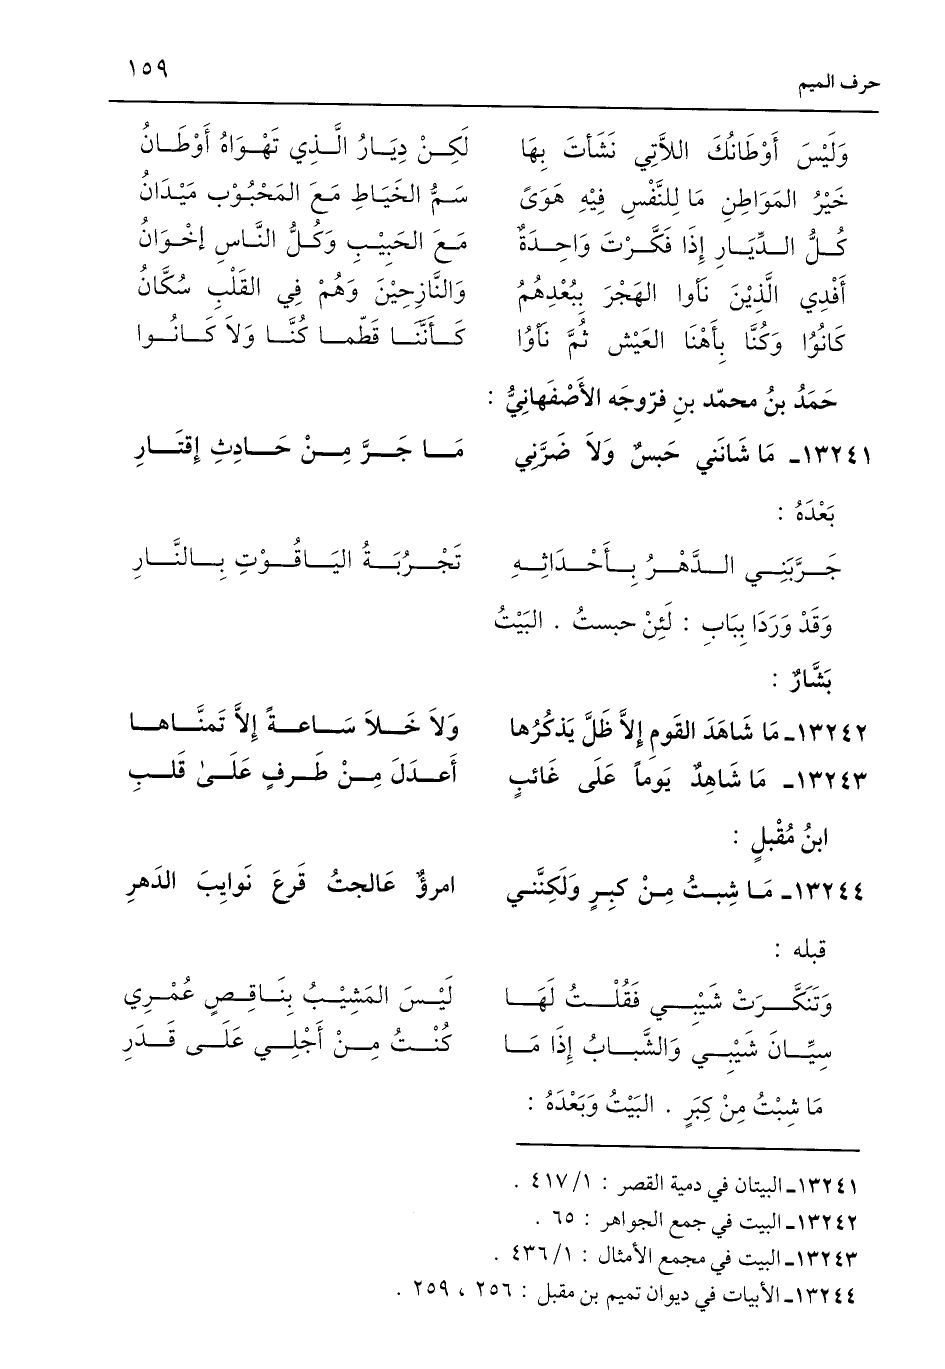 حرف الميم ١٥٩
وَلَيْسَ أَوْطَانُكَ اللاَّتِي نَشَأتَ بِهَا لَكِـنْ دِيَـارُ الَّـذِي تَهْـوَاهُ أَوْطَـانُ
خَيْرُ المَوَاطِنِ مَا لِلنَّفْسِ فِيْهِ هَوَىً سَـمُّ الخَيَاطِ مَـعَ المَحْبُـوْبِ مَيْـدَانُ
كُـلُّ الـدِّيَـارِ إِذَا فَكَّـرْتَ وَاحِـدَةٌ مَـعَ الحَبِيْـبِ وَكُـلُّ النَّـاسِ إخْـوَانُ
أَفْدِي الَّذِيْنَ نَأَوا الهَجْرَ بِبُعْدِهُمُ وَالنَّازِحِيْنَ وَهُمْ فِي القَلْبِ سُكَّانُ
كَانُوْا وَكُنَّا بِأَهْنَا العَيْشِ ثُمَّ نَأَوُا كَـأَنَّنَـا قَطُّمـا كُنَّـا وَلاَ كَـانُـوا
حَمَدُ بنُ محمّد بنِ فرّوجَه الأَصْفَهَانِيُّ :
١٣٢٤١ـ مَا شَانَني حَبسٌ وَلاَ ضَرَّنِي مَـا جَـرَّ مِـنْ حَـادِثِ إِقتَـارِ
بَعْدَهُ :
جَـرَّبَنِـي الـدَّهْـرُ بِـأَحْـدَاثِـهِ تَجْـرُبَـةُ اليَـاقُـوْتِ بِـالنَّـارِ
وَقَدْ وَرَدَا بِبَابِ : لَئِنْ حبستُ . البَيْتُ
بَشَّارٌ :
١٣٢٤٢ـ مَا شَاهَدَ القَومِ إِلاَّ ظَلَّ يَذكُرُها وَلاَ خَـلاَ سَـاعـةً إِلاَّ تَمنَّـاهـا
١٣٢٤٣ـ مَا شَاهِدٌ يَوماً عَلَى غَائبٍ أَعـدَلَ مِـنْ طَـرفٍ عَلَـىٰ قَلـبِ
ابنُ مُقْبلٍ :
١٣٢٤٤ـ مَـا شِبـتُ مِـنْ كبـرٍ وَلَكِنَّنـي امرؤٌ عَالجتُ قَرعَ نَوايبَ الدَهرِ
قبله :
وَتَنَكَّـرَتْ شَيْبِـي فَقُلْـتُ لَهَـا لَيْـسَ المَشِيْـبُ بِنَـاقِـصٍ عُمْـرِي
سِيَّـانَ شَيْبِـي وَالشَّبـابُ إِذَا مَـا كُنْـتُ مِـنْ أَجْلِـي عَلَـى قَـدَرِ
مَا شِبْتُ مِنْ كِبَرٍ . البَيْتُ وَبَعْدَهُ :
١٣٢٤١ـ البيتان في دمية القصر : ١/ ٤١٧ .
١٣٢٤٢ـ البيت في جمع الجواهر : ٦٥ .
١٣٢٤٣ـ البيت في مجمع الأمثال : ١/ ٤٣٦ .
١٣٢٤٤ـ الأبيات في ديوان تميم بن مقبل : ٢٥٦ ، ٢٥٩ .